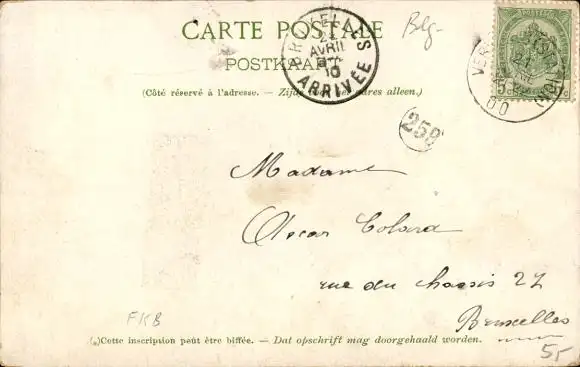 CARTE POSTALE
POSTKAART
(Côté réservé à l'adresse. — Zijde adres alleen.)
BRUXELLES
21
AVRIL
10
ARRIVÉE
Blg-
VER
00
259
Madame
Oscar Colard
rue du chassis 27
Bruxelles
FKB
(*)Cette inscription peut être biffée. — Dat opschrift mag doorgehaald worden.
55-